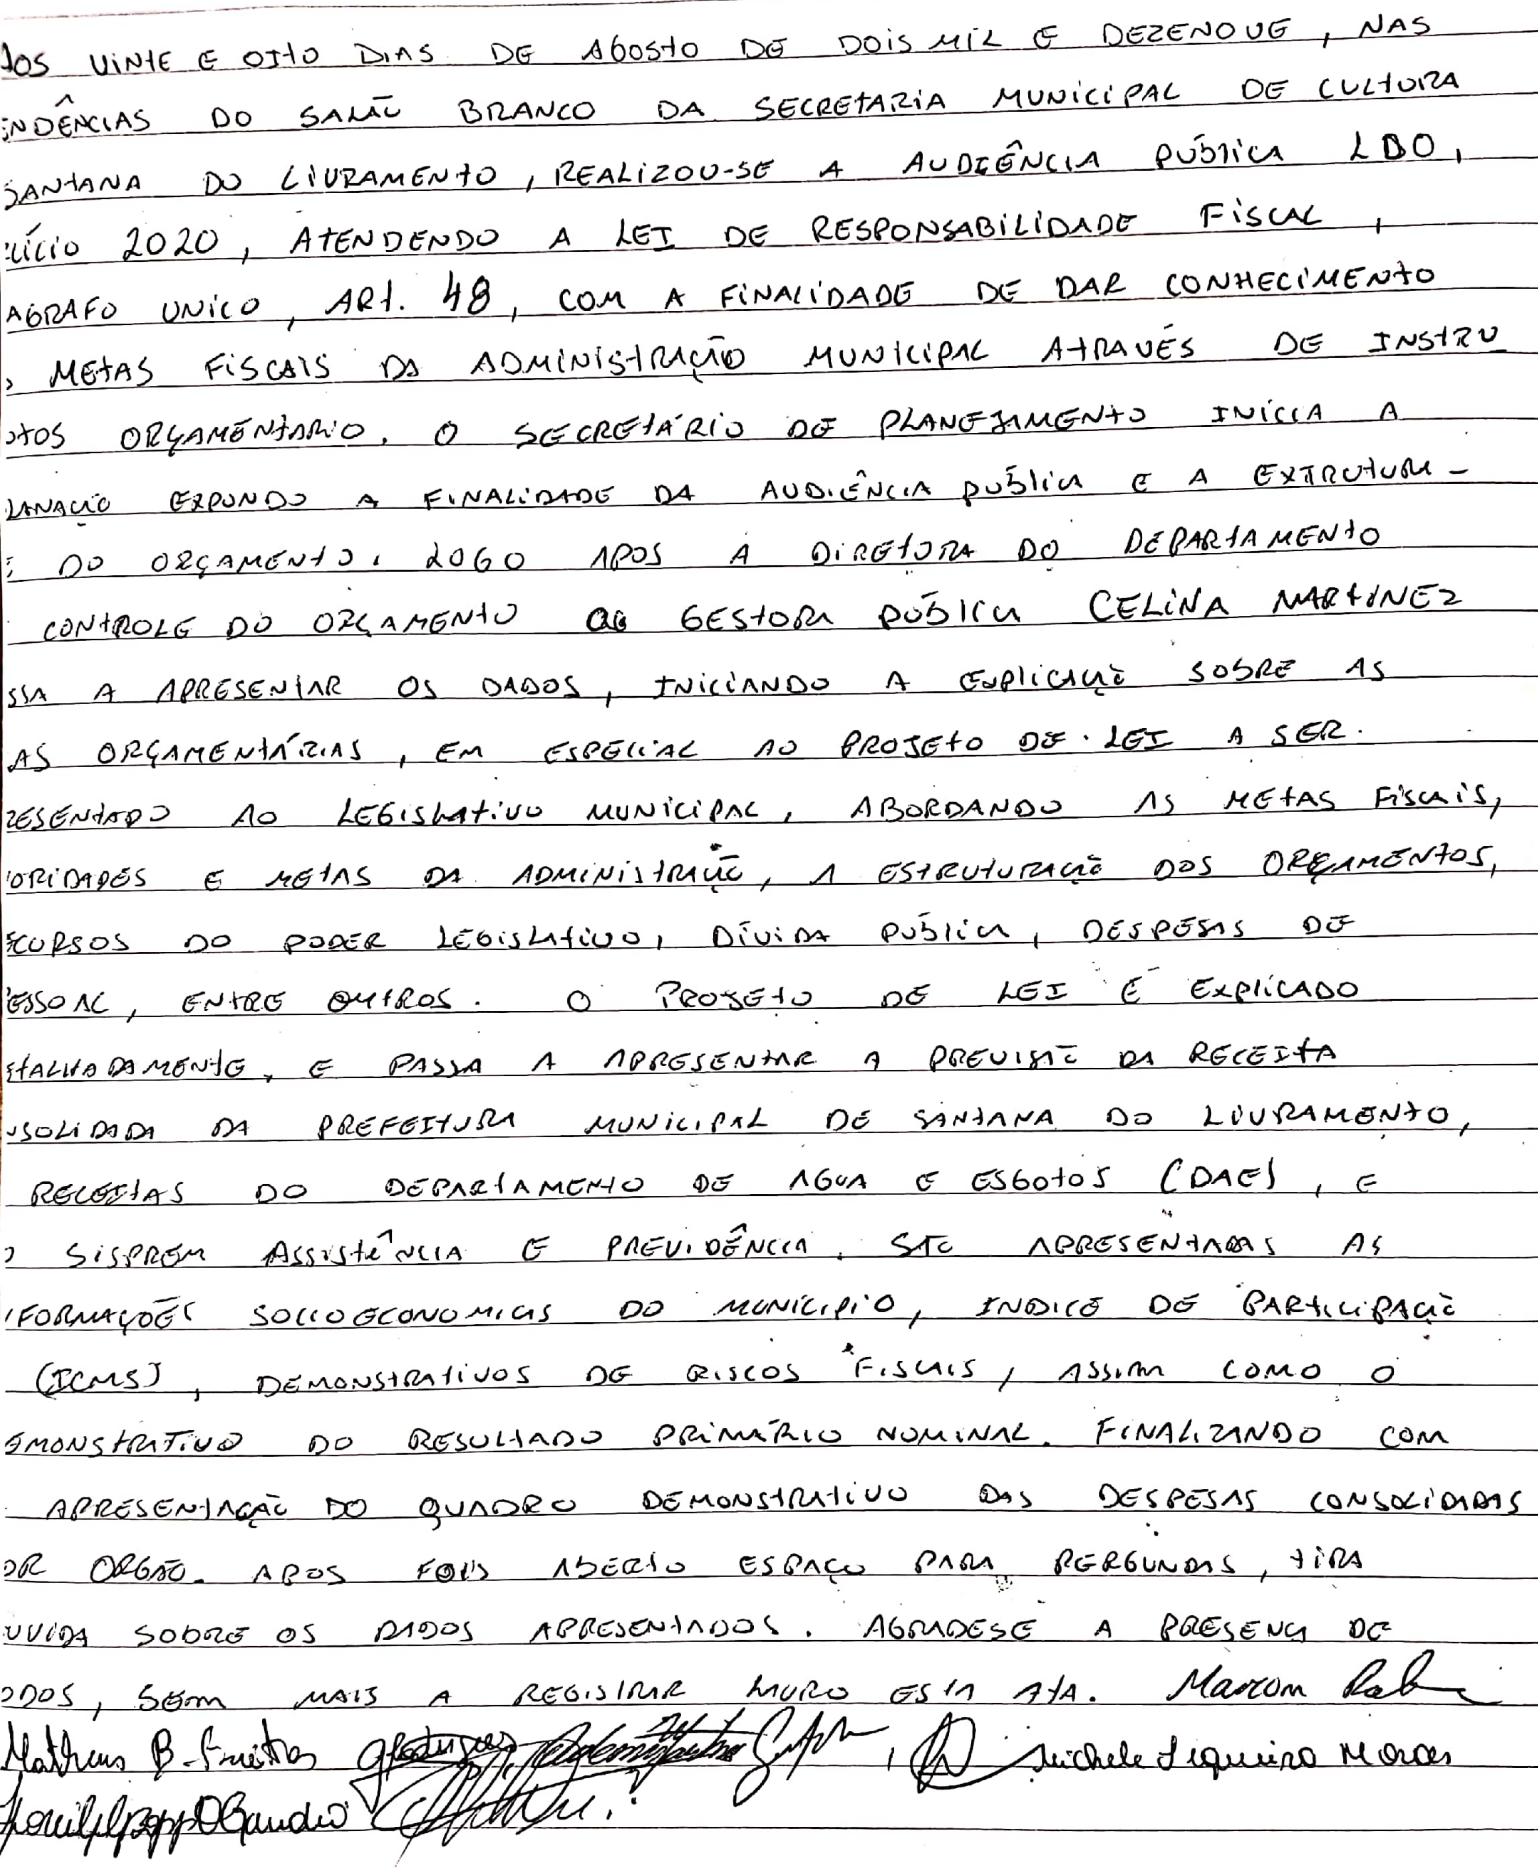 AOS VINTE E OITO DIAS DE AGOSTO DE DOIS MIL E DEZENOVE, NAS
ENDÊNCIAS DO SALÃO BRANCO DA SECRETARIA MUNICIPAL DE CULTURA
SANTANA DO LIVRAMENTO, REALIZOU-SE A AUDIÊNCIA PÚBLICA LDO,
CÍCIO 2020, ATENDENDO A LEI DE RESPONSABILIDADE FISCAL,
AGRAFO UNICO, ART. 48, COM A FINALIDADE DE DAR CONHECIMENTO
METAS FISCAIS DA ADMINISTRAÇÃO MUNICIPAL ATRAVÉS DE INSTRU
NTOS ORÇAMENTARIO. O SECRETÁRIO DE PLANEJAMENTO INÍCIA A
LANAÇÃO EXPONDO A FINALIDADE DA AUDIÊNCIA PÚBLICA E A EXTRUTURA-
DO ORÇAMENTO. LOGO APOS A DIRETORA DO DEPARTAMENTO
CONTROLE DO ORÇAMENTO GESTORA PÚBLICA CELINA MARTINEZ
SSA A APRESENTAR OS DADOS, INICIANDO A EXPLICAÇÃO SOBRE AS
AS ORÇAMENTÁRIAS, EM ESPECIAL AO PROJETO DE LEI A SER
RESENTADO AO LEGISLATIVO MUNICIPAL, ABORDANDO AS METAS FISCAIS,
IORIDADES E METAS DA ADMINISTRAÇÃO, A ESTRUTURAÇÃO DOS ORÇAMENTOS,
ECURSOS DO PODER LEGISLATIVO, DÍVIDA PÚBLICA, DESPESAS DE
ESSOAL, ENTRE OUTROS. O PROJETO DE LEI É EXPLICADO
ETALHADAMENTE, E PASSA A APRESENTAR A PREVISÃO DA RECEITA
NSOLIDADA DA PREFEITURA MUNICIPAL DE SANTANA DO LIVRAMENTO,
RECEITAS DO DEPARTAMENTO DE AGUA E ESGOTOS (DAE), E
O SISPREM ASSISTÊNCIA E PREVIDÊNCIA. SÃO APRESENTADAS AS
NFORMAÇÕES SOCIOECONOMICAS DO MUNICÍPIO, INDICE DE PARTICIPAÇÃO
(ICMS), DEMONSTRATIVOS DE RISCOS FISCAIS, ASSIM COMO O
EMONSTRATIVO DO RESULTADO PRIMÁRIO NOMINAL. FINALIZANDO COM
APRESENTAÇÃO DO QUADRO DEMONSTRATIVO DAS DESPESAS CONSOLIDADAS
OR ORGÃO. APOS FOI ABERTO ESPAÇO PARA PERGUNTAS, TIRA
UVIDA SOBRE OS DADOS APRESENTADOS. AGRADESE A PRESENÇA DE
ODOS, SEM MAIS A REGISTRAR LAVRO ESTA ATA.
Matheus B. Freitas Michele Siqueira Moraes